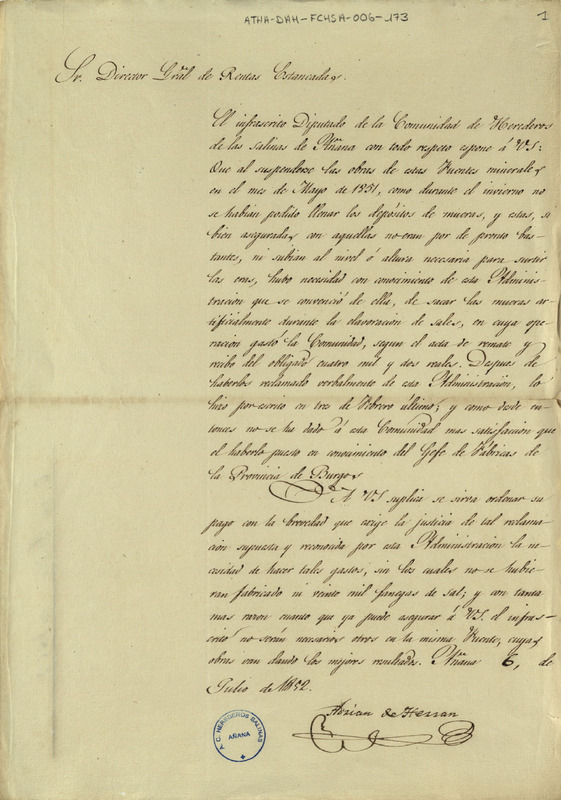 ATHA-DAH-FCHSA-006-173
1
Sr. Director Gral de Rentas Estancadas.
El infrascrito Diputado de la Comunidad de Herederos
de las Salinas de Añana con todo respeto espone á VS:
Que al suspenderse las obras de estas Fuentes minerales
en el mes de Mayo de 1851, como durante el invierno no
se habian podido llenar los depósitos de mueras, y estas, si
bien aseguradas con aquellas no eran por de pronto bas-
tantes, ni subian al nivel ó altura necesaria para surtir
las eras, hubo necesidad con conocimiento de esta Adminis-
tracion que se convenció de ella, de sacar las mueras ar-
tificialmente durante la elavoracion de sales, en cuya ope-
racion gastó la Comunidad, segun el acta de remate y
recibo del obligado cuatro mil y dos reales. Despues de
haberlos reclamado verbalmente de esta Administracion, lo
hizo por escrito en tres de Febrero último; y como desde en-
tonces no se ha dado á esta Comunidad mas satisfaccion que
el haberlo puesto en conocimiento del Gefe de Fábricas de
la Provincia de Burgos
A VS suplica se sirva ordenar su
pago con la brevedad que exige la justicia de tal reclama-
cion supuesta y reconocida por esta Administracion la ne-
cesidad de hacer tales gastos, sin los cuales no se hubie-
ran fabricado ni veinte mil fanegas de sal; y con tanta
mas razon cuanto que ya puede asegurar á VS. el infras-
crito no serán necesarios otros en la misma Fuente, cuyas
obras van dando los mejores resultados. Añana 6, de
Julio de 1852.
Adrian de Herran
A.C. HEREDEROS SALINAS
AÑANA